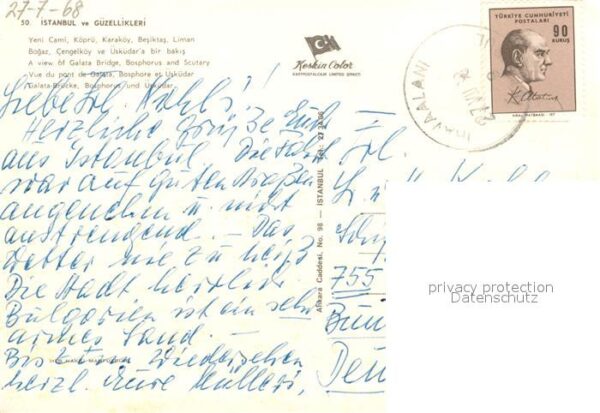 27-7-68
50. İSTANBUL ve GÜZELLİKLERİ
Yeni Cami, Köprü, Karaköy, Beşiktaş, Liman
Boğaz, Çengelköy ve Üsküdar'a bir bakış
A view of Galata Bridge, Bosphorus and Scutary
Vue du pont de Galata, Bosphore et Usküdar
Galata-Brücke, Bosphorus und Usküdar
Keskin Color
KARTPOSTALCILIK LIMITED ŞİRKETİ
TÜRKİYE CUMHURİYETİ
POSTALARI
90
KURUŞ
K. Atatürk
HAVAALANI
Liebe
Herzliche Grüße Euch
aus Istanbul. Die Fahrt
war auf guten Straßen
angenehm u. nicht
anstrengend. – Das
Wetter nie zu heiß
Die Stadt herrlich.
Bulgarien ist ein sehr
armes Land. –
Bis zum Wiedersehen
herzl. Eure Müllers,
Ankara Caddesi, No. 98 — İSTANBUL Tel.:
Frl.
755
privacy protection
Datenschutz